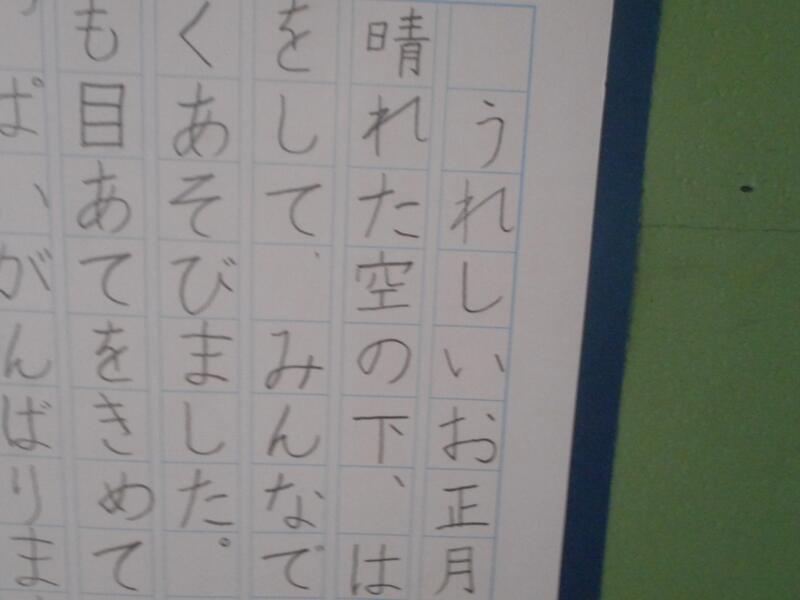 うれしいお正月
晴れた空の下、は
をして、みんなで
くあそびました。
も目あてをきめて
ぱいがんばりま